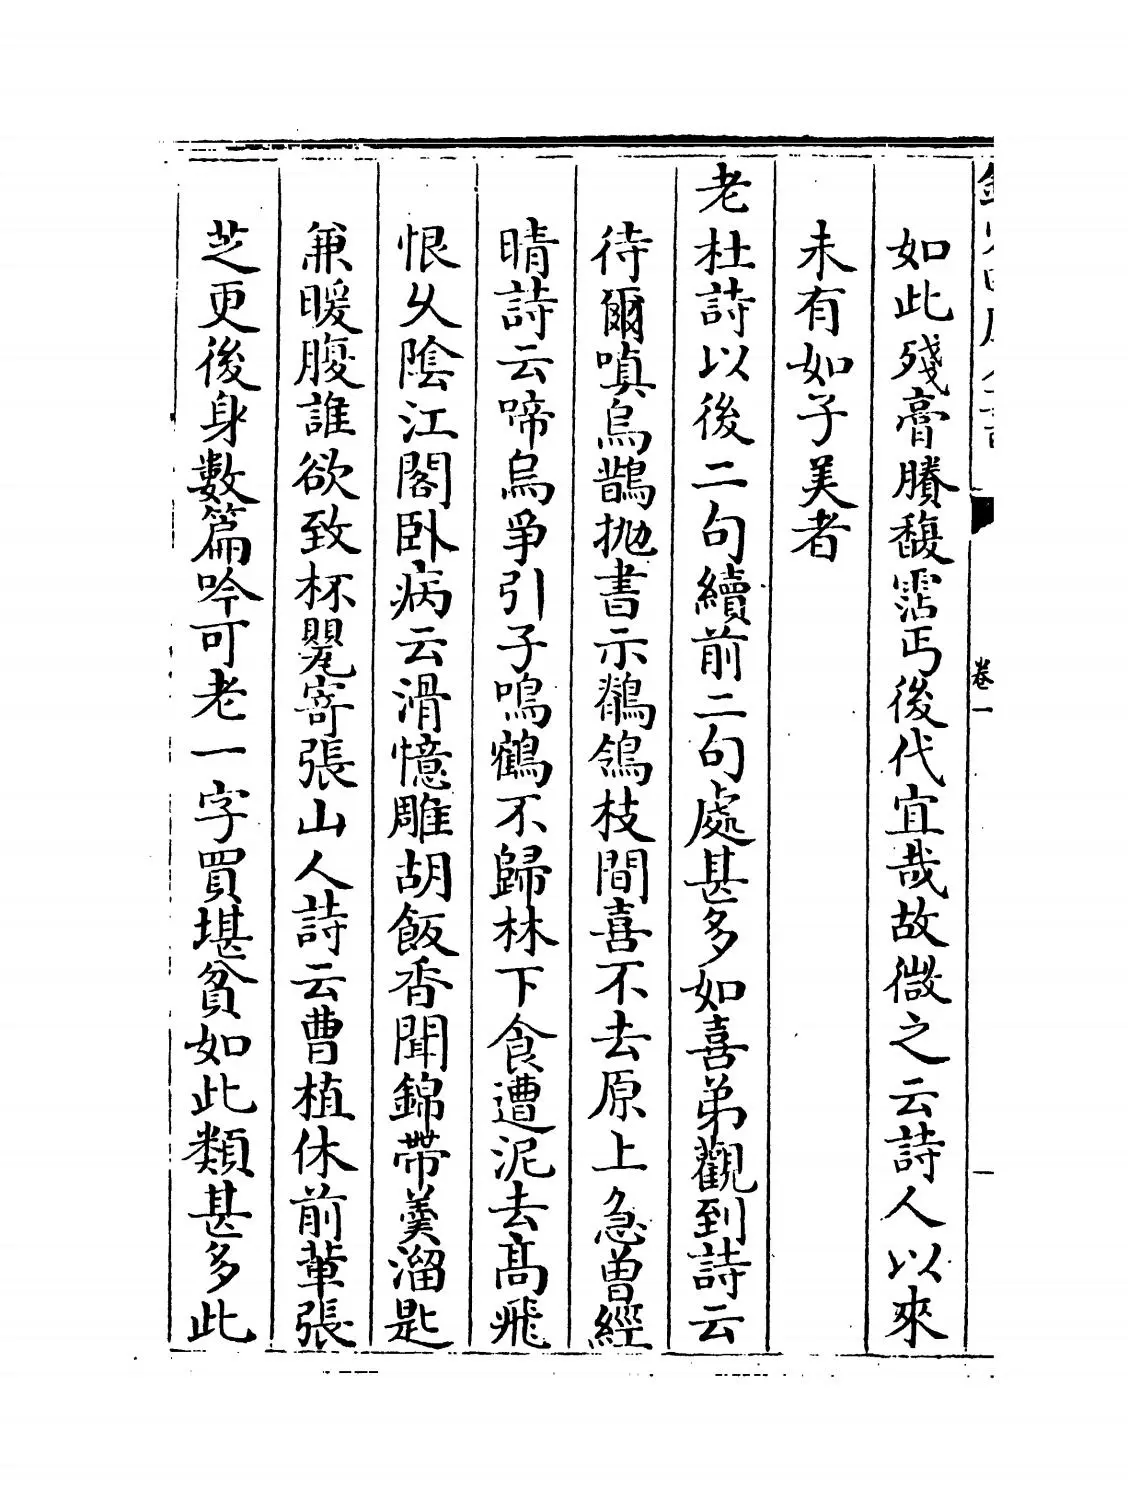 卷一
如此殘膏賸馥霑丐後代宜哉故微之云詩人以來
未有如子美者
老杜詩以後二句續前二句處甚多如喜弟觀到詩云
待爾嗔烏鵲抛書示鶺鴒枝間喜不去原上急曾經
晴詩云啼烏爭引子鳴鶴不歸林下食遭泥去髙飛
恨乆陰江閣卧病云滑憶雕胡飯香聞錦帶羮溜匙
兼暖腹誰欲致杯罌寄張山人詩云曹植休前輩張
芝更後身數篇吟可老一字買堪貧如此類甚多此